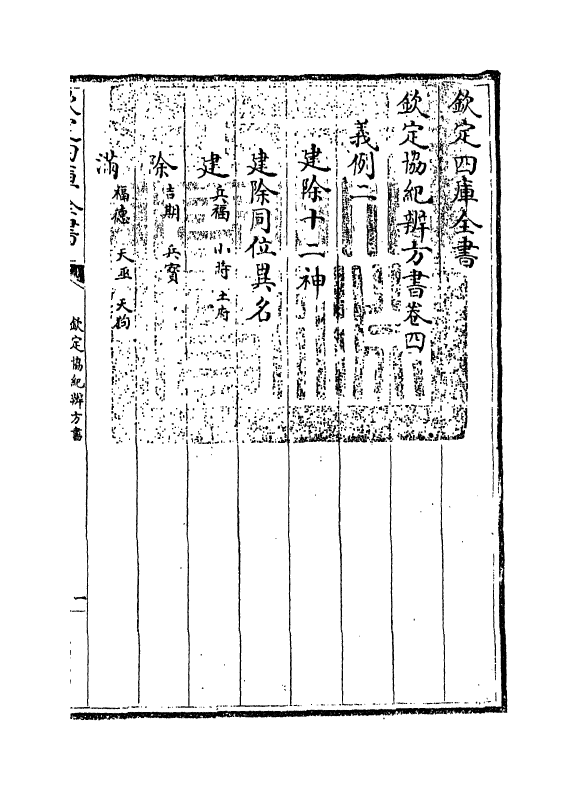 欽定四庫全書
欽定協紀辨方書卷四
義例二
建除十二神
建除同位異名
建 兵福 小時 土府
除 吉期 兵寶
滿 福德 天巫 天狗
欽定四庫全書
欽定協紀辨方書
一